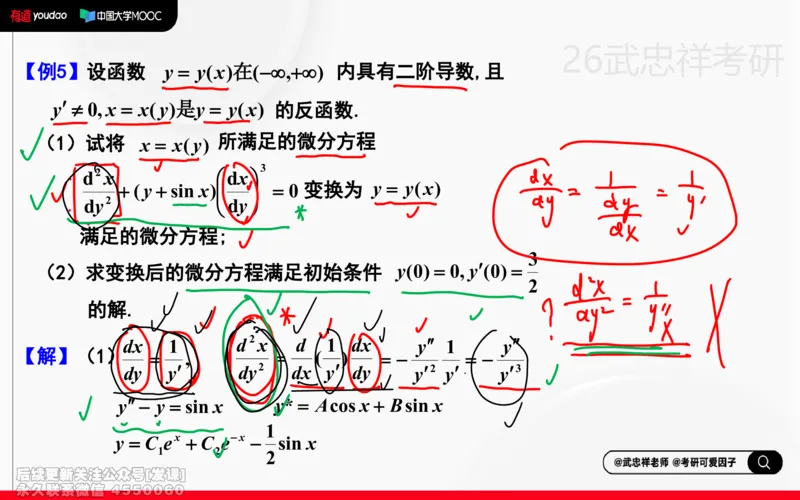 有道 youdao 中国大学MOOC
26武忠祥考研
【例5】设函数 y = y(x)在(−∞,+∞) 内具有二阶导数,且
y′ ≠ 0, x = x(y)是y = y(x) 的反函数.
(1) 试将 x = x(y) 所满足的微分方程
d²x/dy² + (y + sin x)(dx/dy)³ = 0 变换为 y = y(x)
满足的微分方程;
dx/dy = 1/(dy/dx) = 1/y′
(2) 求变换后的微分方程满足初始条件 y(0) = 0, y′(0) = 3/2
的解.
? d²x/dy² = 1/y″ X
【解】 (1) dx/dy = 1/y′, d²x/dy² = d/dx(1/y′) dx/dy = − y″/y′² 1/y′ = − y″/y′³
y″ − y = sin x y* = A cos x + B sin x
y = C₁eˣ + C₂e⁻ˣ − 1/2 sin x
@武忠祥老师 @考研可爱因子
后续更新关注公众号[发课]
永久联系微信 4550060